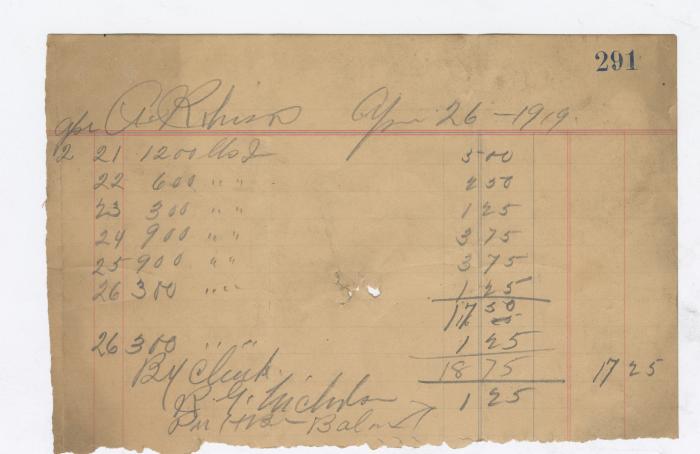 291
A. Robison Apr 26-1919.
Apr
2 21 1200 lbs I 5 00
22 600 " " 2 50
23 300 " " 1 25
24 900 " " 3 75
25 900 " " 3 75
26 300 " " 1 25
17 50
26 300 " " 1 25
By Check. 18 75 17 25
B. G. Nicholson 1 25
Bal